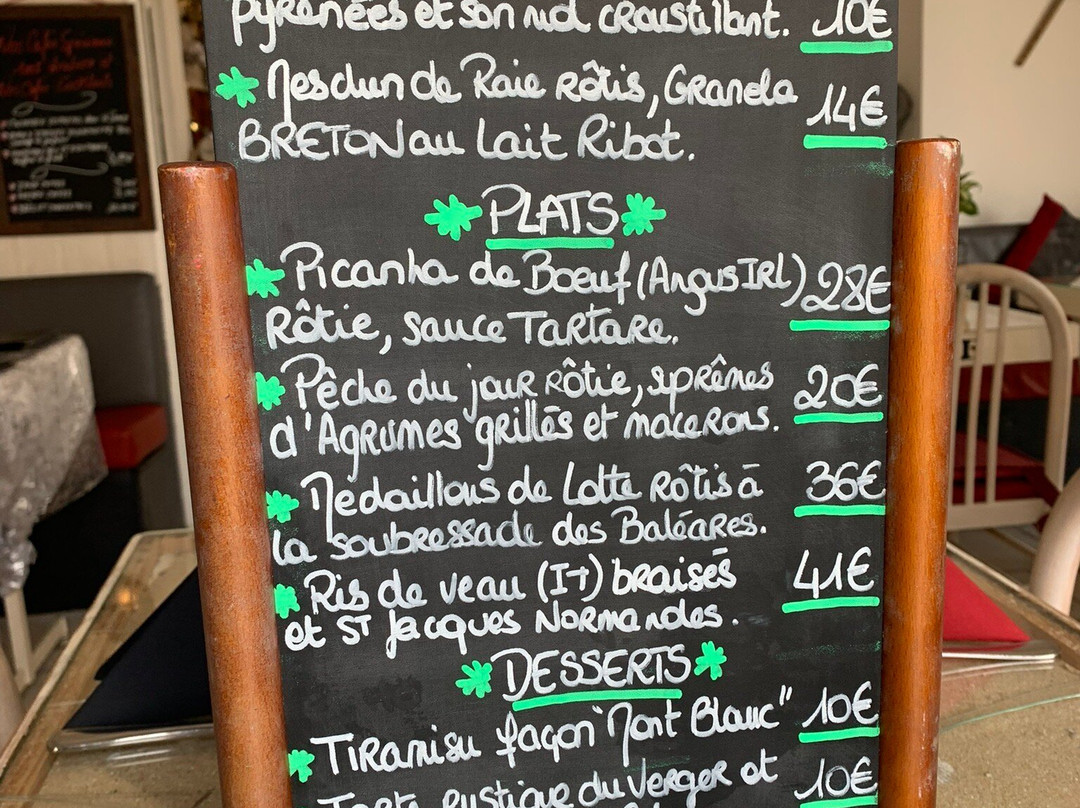 pyrénées et son nid croustillant. 10€
Mesclun de Raie Rôtis, Granola 14€
BRETON au Lait Ribot.
PLATS
Picanha de Boeuf (Angus IRL) 28€
Rôtie, sauce Tartare.
Pêche du jour Rôtie, suprêmes 20€
d'Agrumes grillés et macerons.
Médaillons de Lotte Rôtis à 36€
la soubressade des Baléares.
Ris de veau (It) braisés 41€
et ST Jacques Normandes.
DESSERTS
Tiramisu façon "Mont Blanc" 10€
Tarte rustique du verger et 10€